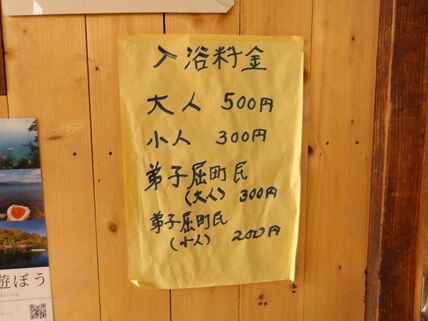 入浴料金
大人 500円
小人 300円
弟子屈町民
(大人) 300円
弟子屈町民
(小人) 200円
遊ぼう